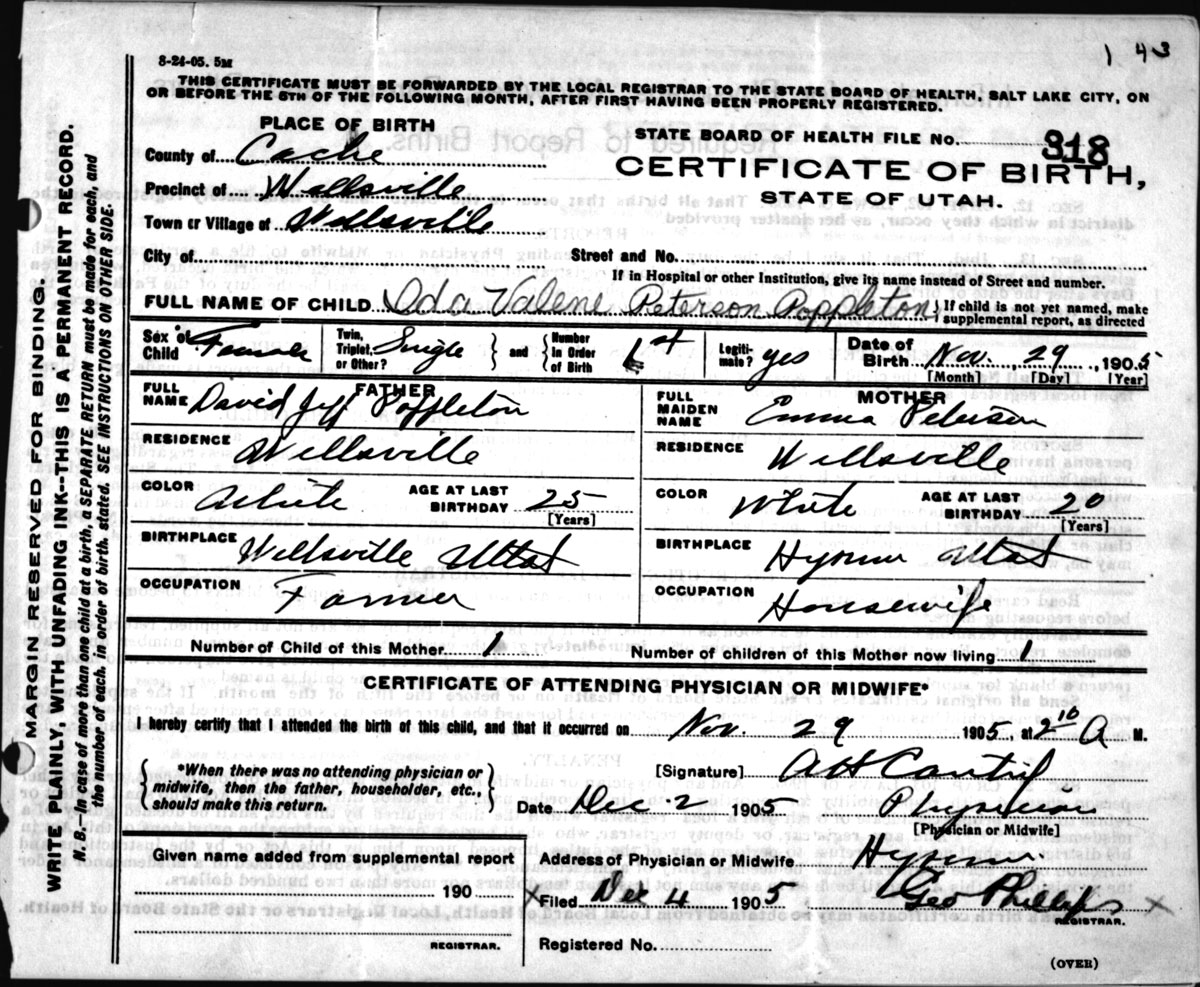 1 43
8-24-05. 5M
THIS CERTIFICATE MUST BE FORWARDED BY THE LOCAL REGISTRAR TO THE STATE BOARD OF HEALTH, SALT LAKE CITY, ON
OR BEFORE THE 5TH OF THE FOLLOWING MONTH, AFTER FIRST HAVING BEEN PROPERLY REGISTERED.
PLACE OF BIRTH
STATE BOARD OF HEALTH FILE No. 318
County of Cache
CERTIFICATE OF BIRTH,
Precinct of Wellsville
STATE OF UTAH.
Town or Village of Wellsville
City of Street and No.
If in Hospital or other Institution, give its name instead of Street and number.
FULL NAME OF CHILD Ida Valene Peterson Poppleton } If child is not yet named, make supplemental report, as directed
Sex of Child Female Twin, Triplet, or Other? Single } and { Number in Order of Birth 1st Legiti-mate? yes Date of Birth Nov. 29, 1905
[Month] [Day] [Year]
FATHER
FULL NAME David Jeff Poppleton
RESIDENCE Wellsville
COLOR White AGE AT LAST BIRTHDAY 25
[Years]
BIRTHPLACE Wellsville Utah
OCCUPATION Farmer
MOTHER
FULL MAIDEN NAME Emma Peterson
RESIDENCE Wellsville
COLOR White AGE AT LAST BIRTHDAY 20
[Years]
BIRTHPLACE Hyrum Utah
OCCUPATION Housewife
Number of Child of this Mother 1 Number of children of this Mother now living 1
CERTIFICATE OF ATTENDING PHYSICIAN OR MIDWIFE*
I hereby certify that I attended the birth of this child, and that it occurred on Nov. 29 1905, at 2 10 A M.
{ *When there was no attending physician or
midwife, then the father, householder, etc.,
should make this return. }
[Signature] A H Cantril
Date Dec 2 1905 Physician
[Physician or Midwife]
Given name added from supplemental report
190
REGISTRAR.
Address of Physician or Midwife Hyrum
x Filed Dec 4 1905 Geo Phillips x
REGISTRAR.
Registered No.
(OVER)
MARGIN RESERVED FOR BINDING.
WRITE PLAINLY, WITH UNFADING INK--THIS IS A PERMANENT RECORD.
N. B.—In case of more than one child at a birth, a SEPARATE RETURN must be made for each, and
the number of each, in order of birth, stated. SEE INSTRUCTIONS ON OTHER SIDE.